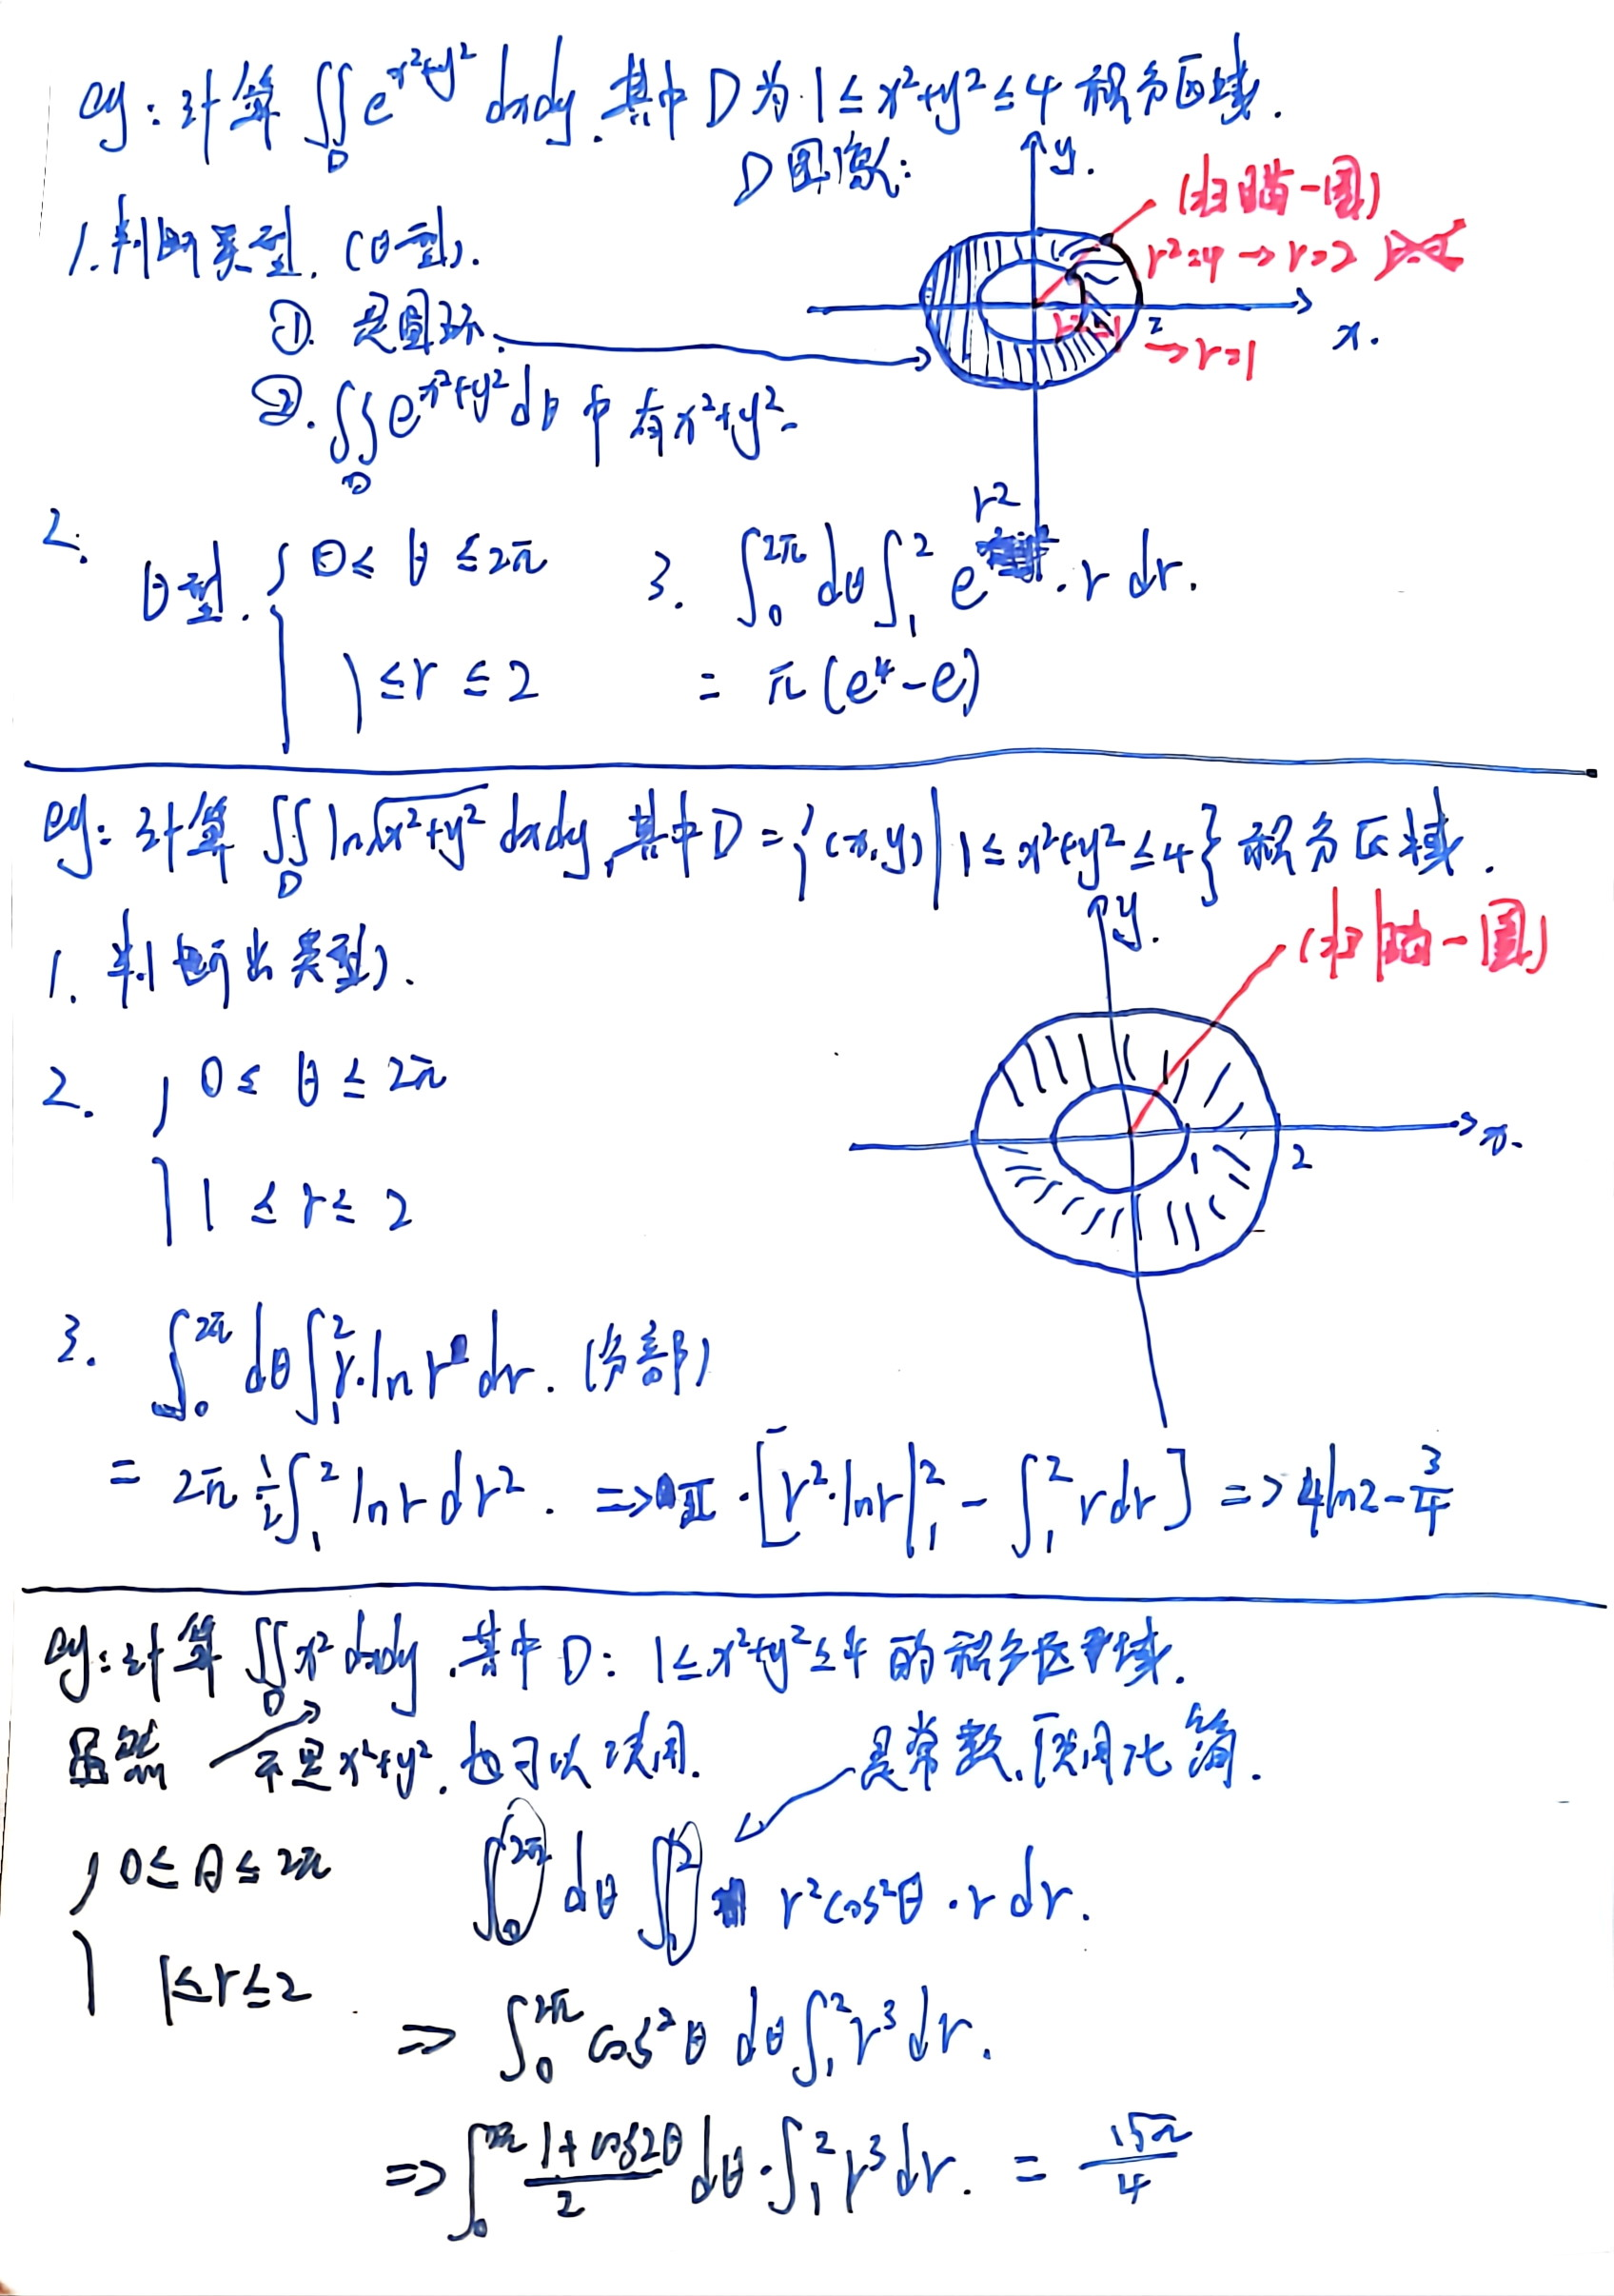 eg: 计算 ∬_D e^{x²+y²} dxdy, 其中 D 为 1≤x²+y²≤4 积分区域.
D 图像:
y.
(扫描一圈)
r²=4 → r=2
2
→r=1
x.
1. 判断类型. (θ型).
①. 是圆环.
②. ∬_D e^{x²+y²} dθ 中有 x²+y².
2. θ型. { 0≤ θ ≤2π
1 ≤ r ≤ 2
3. ∫_0^{2π} dθ ∫_1^2 e^{r²} · r dr.
= π (e⁴-e)
eg: 计算 ∬_D ln√(x²+y²) dxdy, 其中 D = {(x,y) | 1≤x²+y²≤4} 积分区域.
1. 判断出类型).
y.
(扫描一圈)
x.
1
2
2. { 0≤ θ ≤ 2π
1 ≤ r ≤ 2
3. ∫_0^{2π} dθ ∫_1^2 r·ln r dr. (分部)
= 2π ½ ∫_1^2 ln r dr². => π · [r²·ln r |_1^2 - ∫_1^2 r dr] => 4ln2 - 3/4
eg: 计算 ∬_D x² dxdy, 其中 D: 1≤x²+y²≤4 的积分区域.
虽然 不是 x²+y², 也可以使用. 是常数,使用化简.
{ 0≤ θ ≤ 2π
1≤r≤2
∫_0^{2π} dθ ∫_1^2 r²cos²θ · r dr.
=> ∫_0^{2π} cos²θ dθ ∫_1^2 r³ dr.
=> ∫_0^{2π} (1+cos2θ)/2 dθ · ∫_1^2 r³ dr. = 15π/4